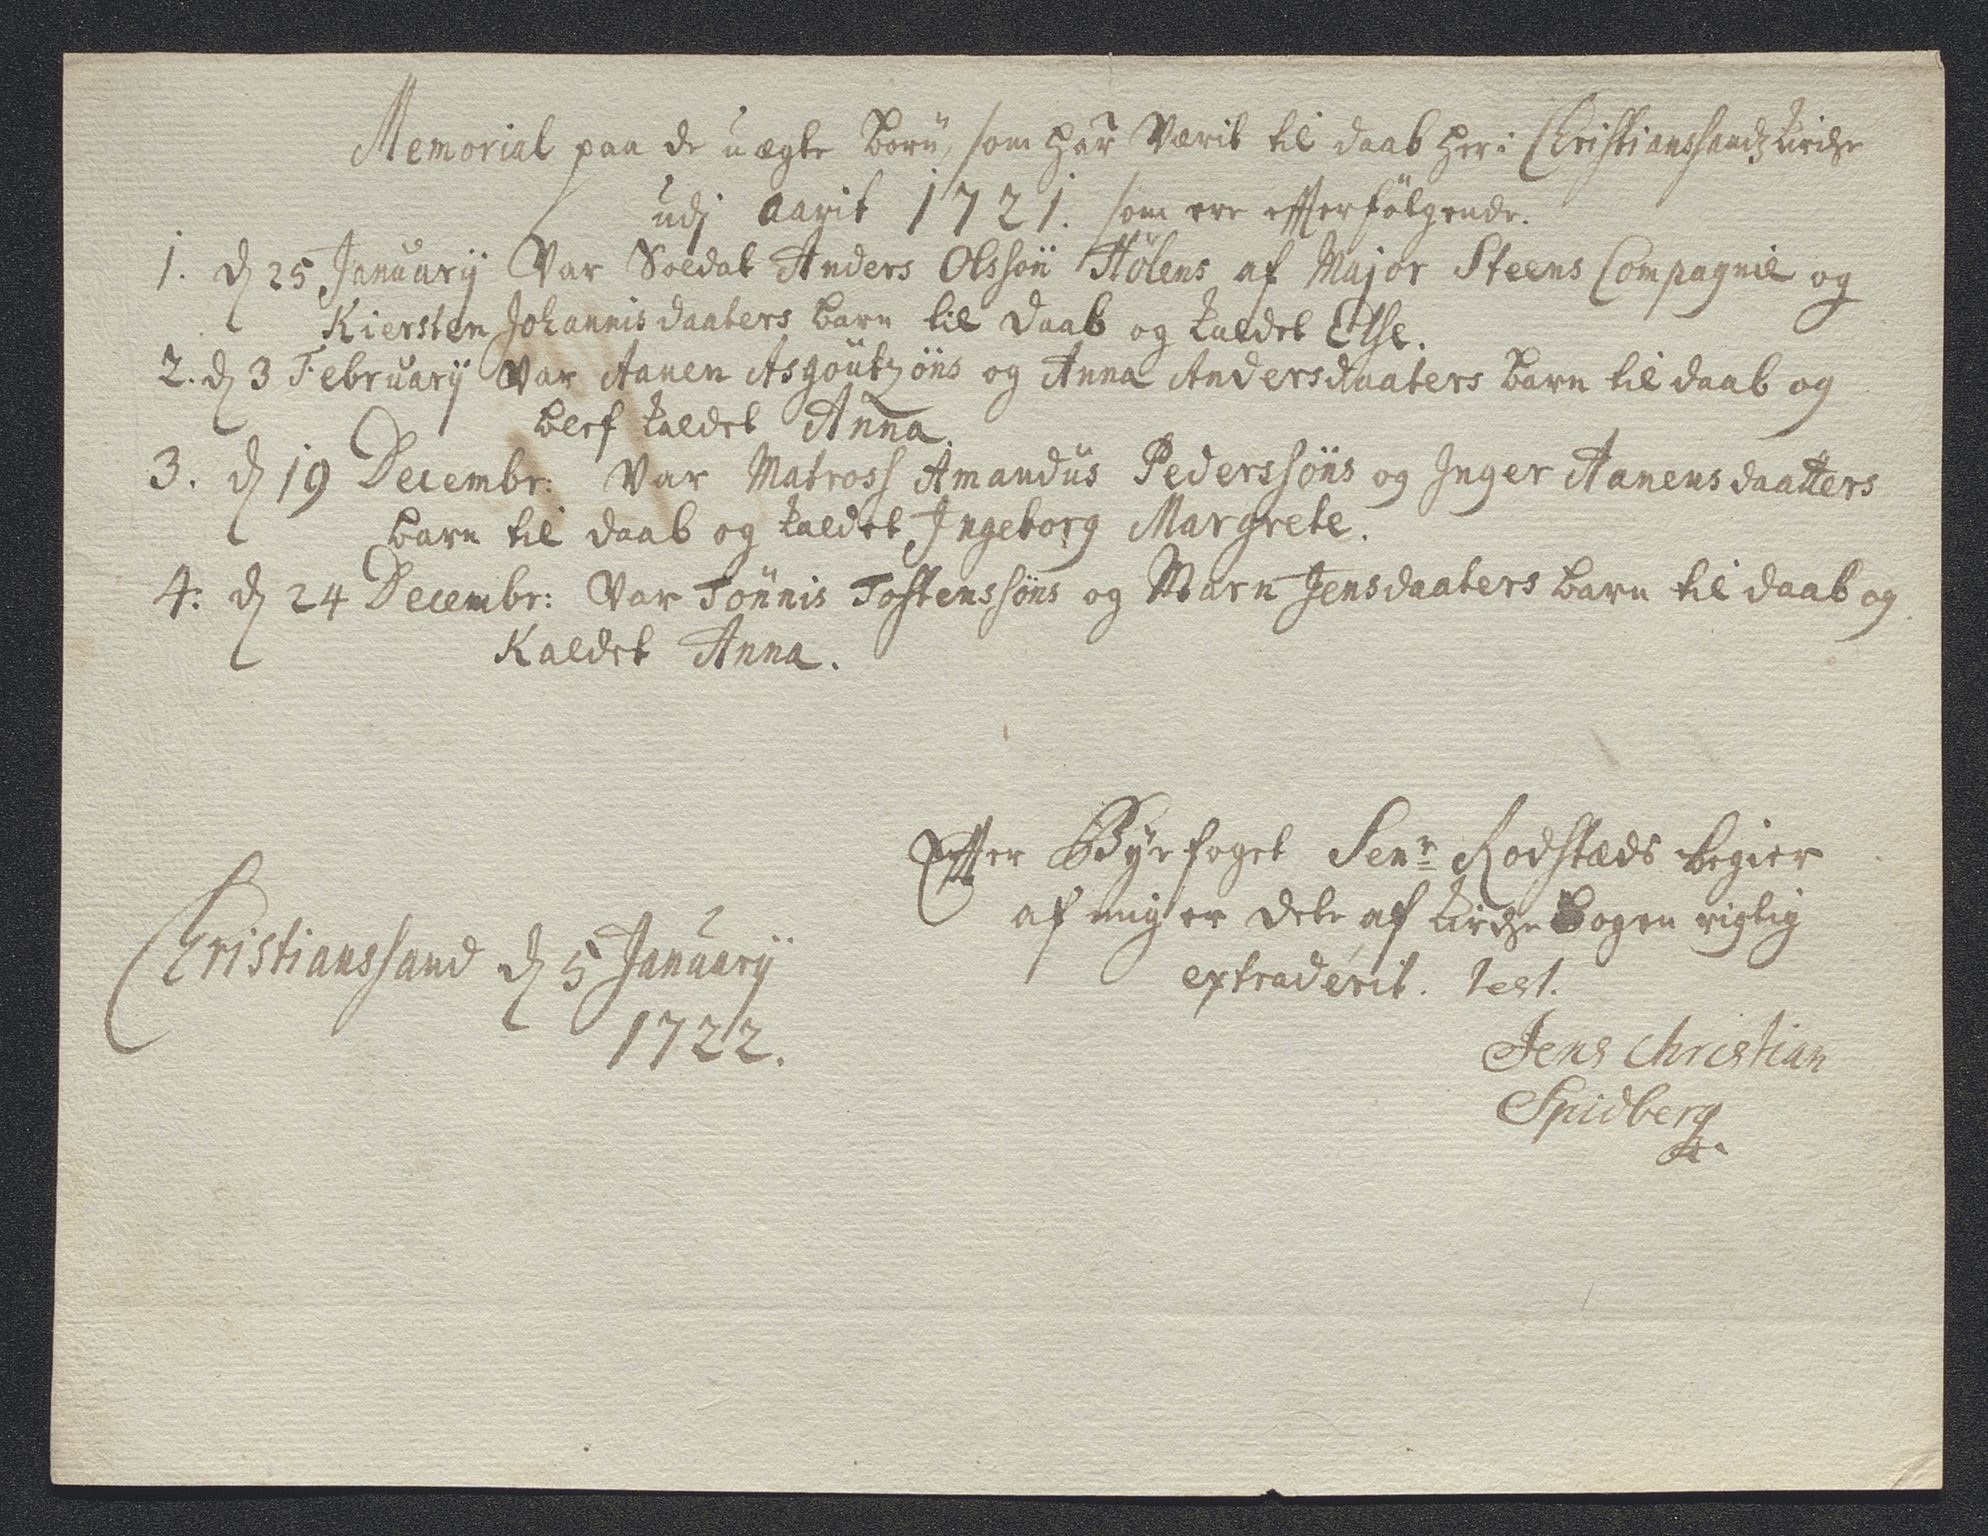 Memorial paa de uægte Børn, som har Værit til daab her i Christianssandz Kirche
udj Aarit 1721. som ere effterfölgende.
1. d 25 Januarij Var Soldat Anders Olssön Hölens af Major Steens Compagnie og
Kiersten Johannisdaaters barn til daab og kaldet Else.
2. d 3 Februarij Var Aanen Asgöutzöns og Anna Andersdaaters barn til daab og
blef kaldet Anna.
3. d 19 Decembr: Var Matross Amandus Pederssöns og Inger Aanensdaatters
barn til daab og kaldet Ingeborg Margrete.
4: d 24 Decembr: Var Tönnis Tostenssöns og Marn Jensdaaters barn til daab og
Kaldet Anna.
Effter Byefoget Senr Rodstæds begier
af mig er dete af Kirche Bogen rigtig
extraderit. Test.
Jens Christian
Spidberg
Christianssand d 5 Januarij
1722.